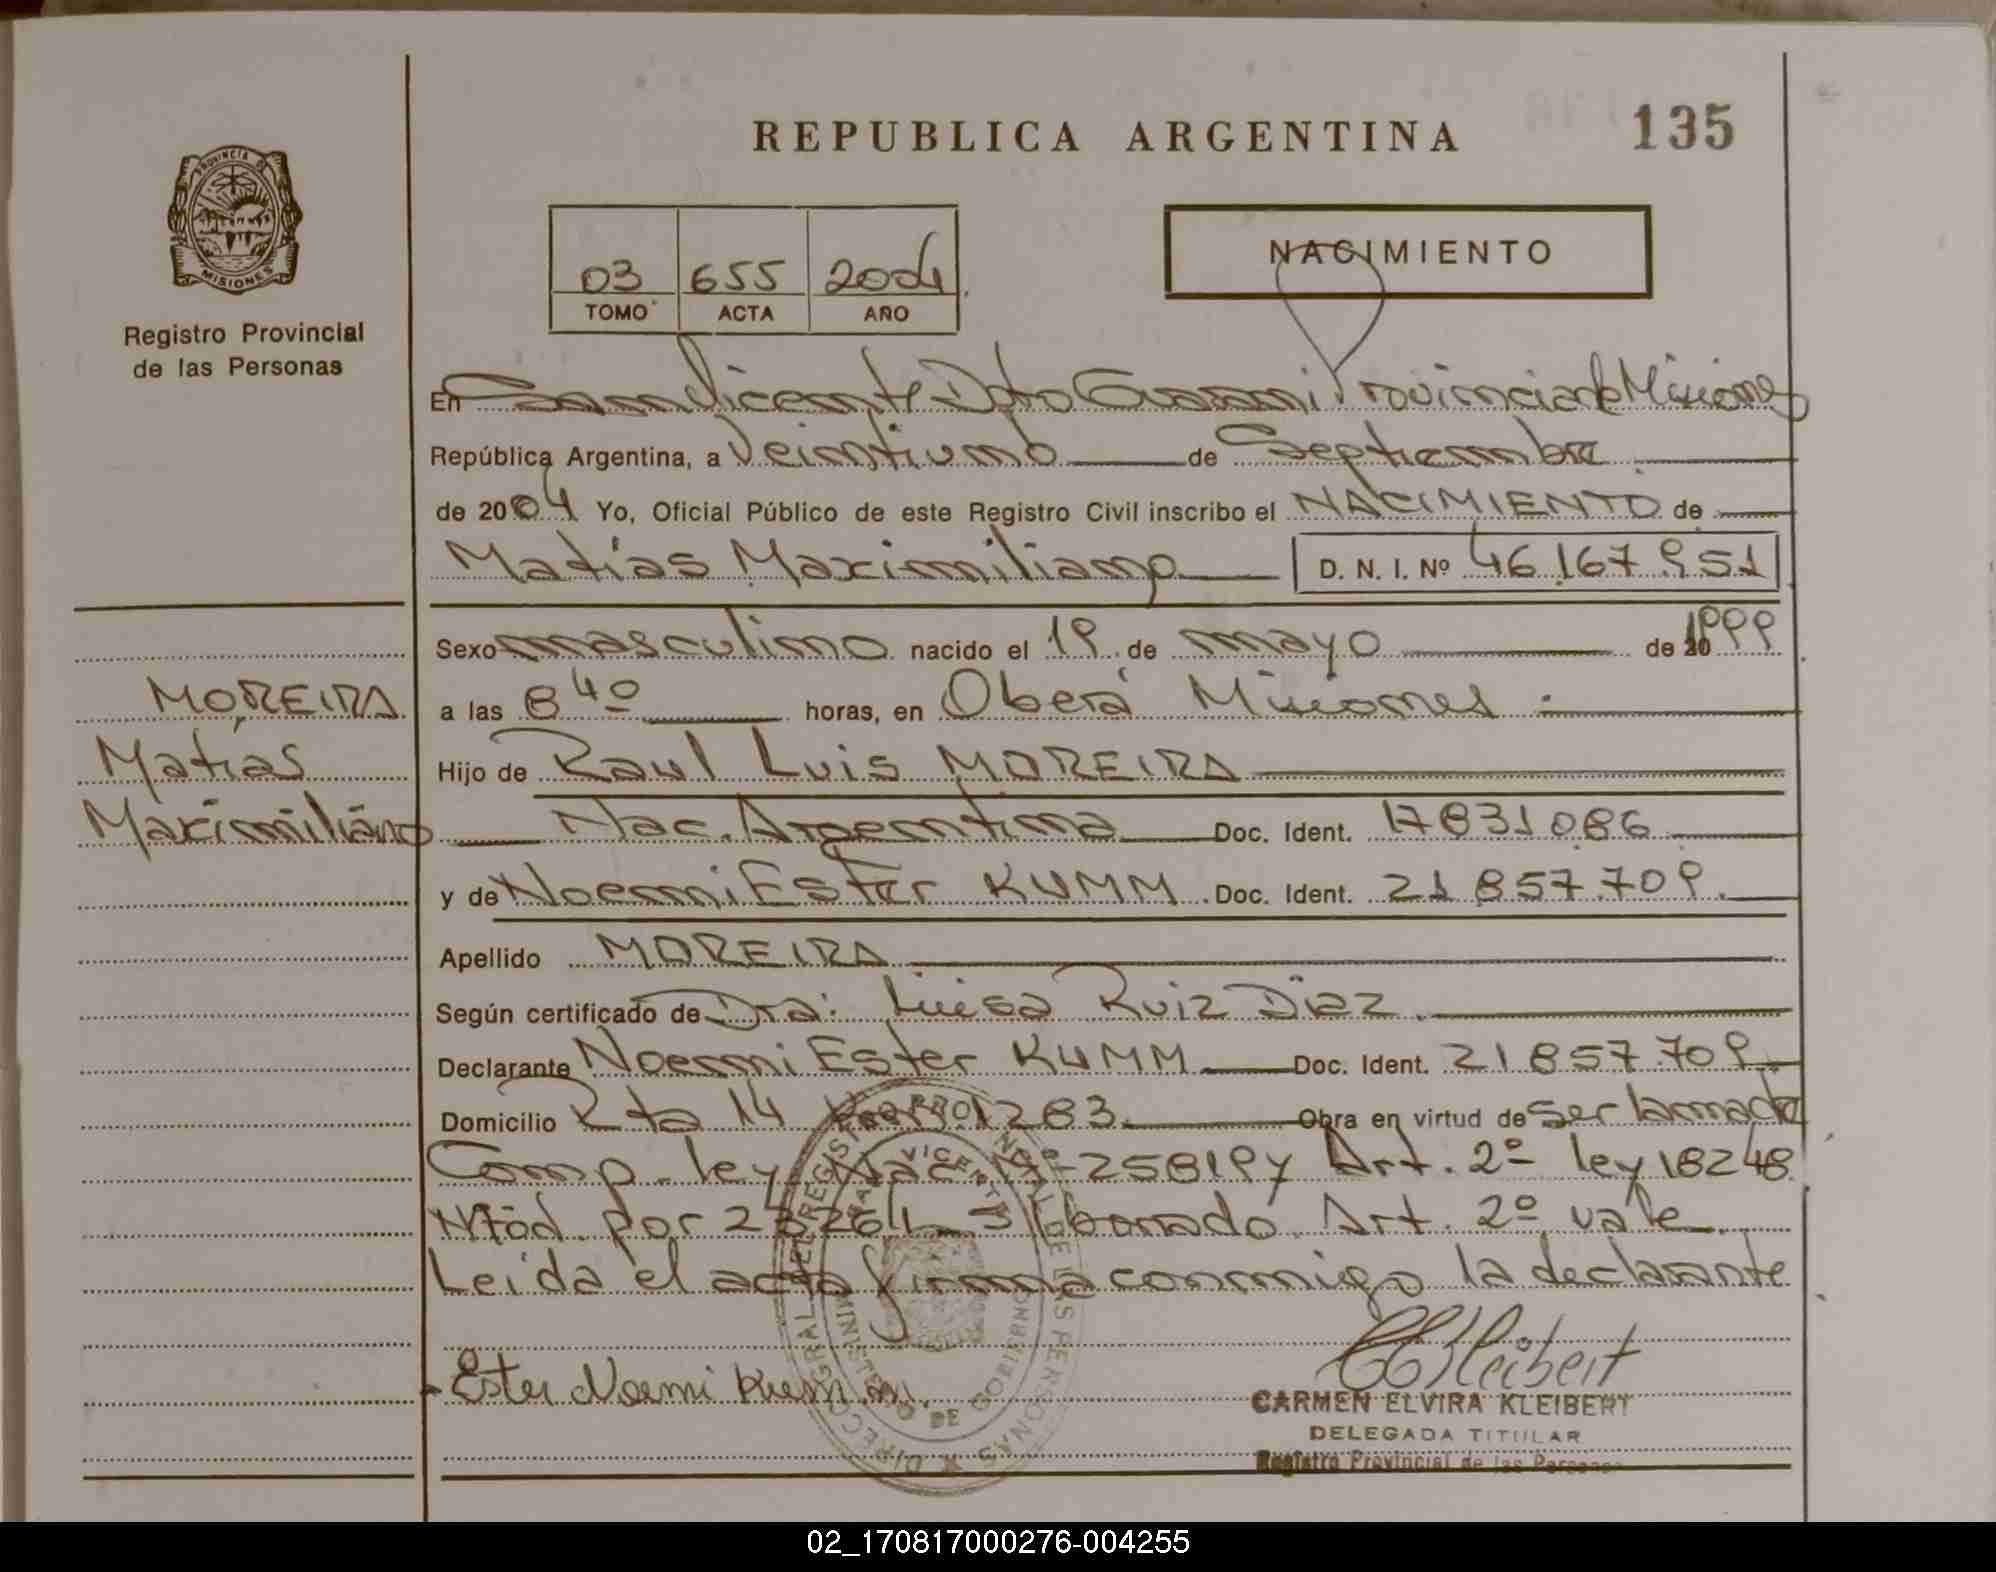 REPUBLICA ARGENTINA
135
PROVINCIA DE
MISIONES
Registro Provincial
de las Personas
03 655 2004
TOMO ACTA AÑO
NACIMIENTO
En San Vicente Dpto Guarani Provincia de Misiones
República Argentina, a Veintiuno de Septiembre
de 2004 Yo, Oficial Público de este Registro Civil inscribo el NACIMIENTO de
Matías Maximiliano D. N. I. Nº 46.167.951
Sexo masculino nacido el 19 de mayo de 20 1999
a las 8 40 horas, en Oberá Misiones
Hijo de Raul Luis MOREIRA
Nac. Argentina Doc. Ident. 17831086
y de Noemi Ester KUMM Doc. Ident. 21.857.709
Apellido MOREIRA
Según certificado de Dra: Luisa Ruiz Diaz
Declarante Noemi Ester KUMM Doc. Ident. 21.857.709
Domicilio Rta 14 Km 1283 Obra en virtud de ser la madre
Comp. ley Nac Nº 25819 y Art. 2º ley 18248
Mod. por 23264 borrado. Art. 2º vale
Leída el acta firma conmigo la declarante
MOREIRA
Matías
Maximiliano
Ester Noemi Kumm
CKleibert
CARMEN ELVIRA KLEIBERT
DELEGADA TITULAR
Registro Provincial de las Personas
02_170817000276-004255